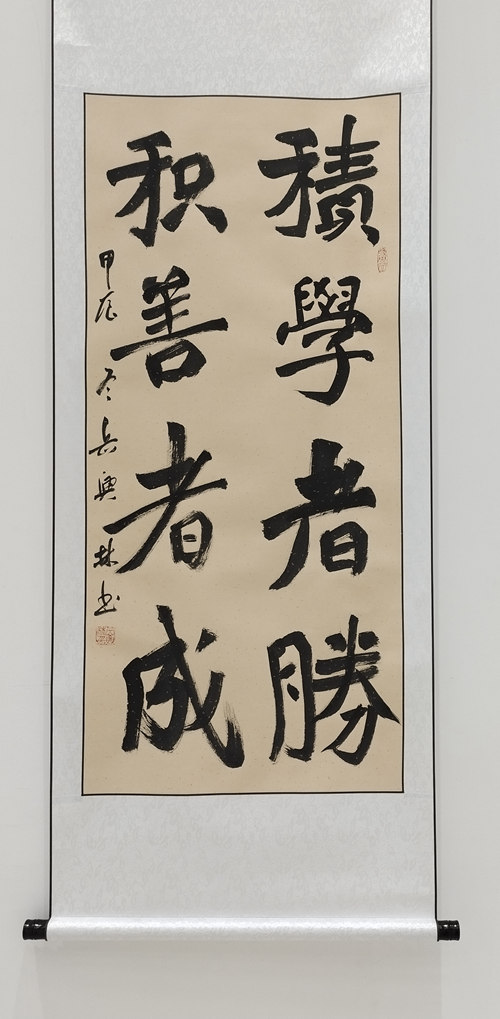 積學者勝
积善者成
甲辰冬岳興林书